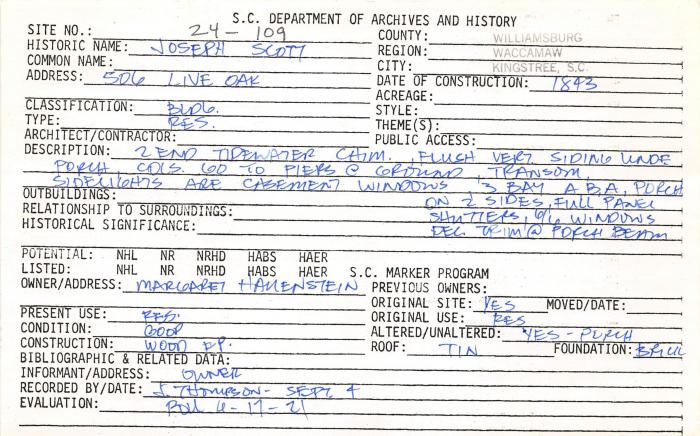 S.C. DEPARTMENT OF ARCHIVES AND HISTORY
SITE NO.: 24-109
COUNTY: WILLIAMSBURG
HISTORIC NAME: JOSEPH SCOTT
REGION: WACCAMAW
COMMON NAME:
CITY: KINGSTREE, S.C.
ADDRESS: 506 LIVE OAK
DATE OF CONSTRUCTION: 1843
ACREAGE:
CLASSIFICATION: BLDG.
STYLE:
TYPE: RES.
THEME(S):
ARCHITECT/CONTRACTOR:
PUBLIC ACCESS:
DESCRIPTION: 2 END TIDEWATER CHIM., FLUSH VERT. SIDING UNDE
PORCH, COLS. GO TO PIERS @ GROUND, TRANSOM,
SIDELIGHTS ARE CASEMENT WINDOWS, 3 BAY A.B.A, PORCH
OUTBUILDINGS: ON 2 SIDES, FULL PANEL
RELATIONSHIP TO SURROUNDINGS: SHUTTERS, 6/6 WINDOWS
HISTORICAL SIGNIFICANCE: DEC. TRIM @ PORCH BEAM
POTENTIAL: NHL NR NRHD HABS HAER
LISTED: NHL NR NRHD HABS HAER S.C. MARKER PROGRAM
OWNER/ADDRESS: MARGARET HAUENSTEIN PREVIOUS OWNERS:
ORIGINAL SITE: YES MOVED/DATE:
PRESENT USE: RES.
ORIGINAL USE: RES
CONDITION: GOOD
ALTERED/UNALTERED: YES - PORCH
CONSTRUCTION: WOOD FR.
ROOF: TIN FOUNDATION: BRICK
BIBLIOGRAPHIC & RELATED DATA:
INFORMANT/ADDRESS: OWNER
RECORDED BY/DATE: J. THOMPSON - SEPT 4
EVALUATION: 6-17-21